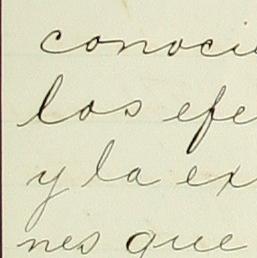 conoci
los efe
y la ex
nes que